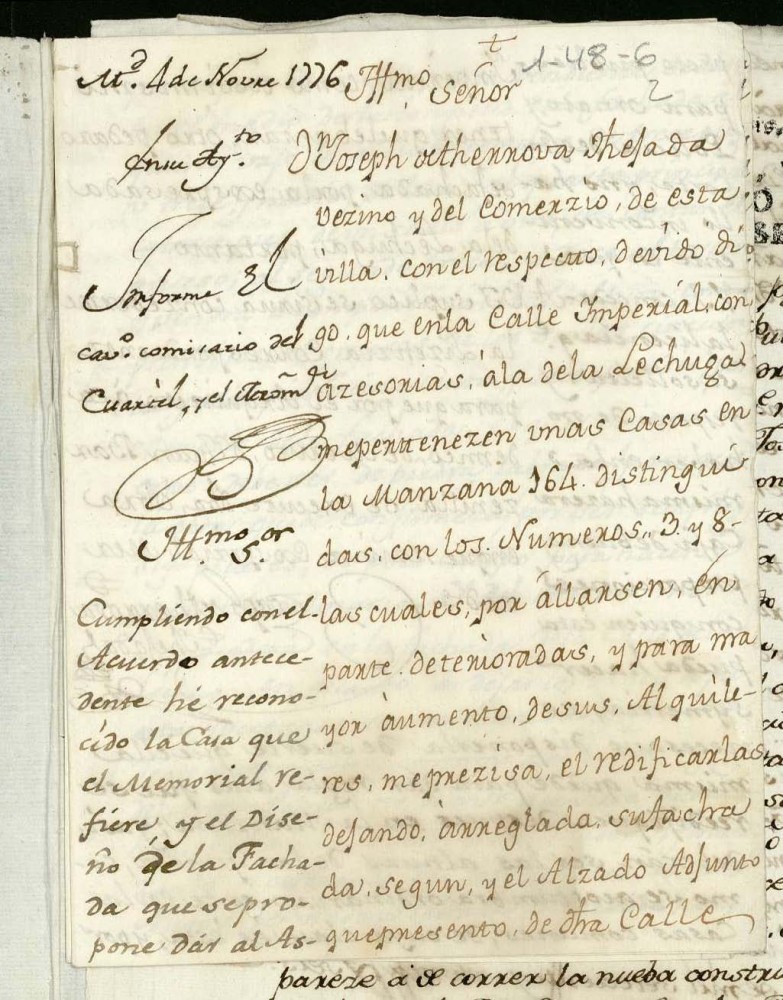 1-48-6
2
M.d 4 de Novre 1776
En su Ayto.
Informe El
cavo. comisario del
Cuartel, y el
Illmo Sor
Cumpliendo con el
Acuerdo antece-
dente hé recono-
cido la Casa que
el Memorial re-
fiere, y el Dise-
ño de la Facha-
da que se pro-
pone dár al As-
Illmo Señor
Dn Joseph de therrova
vezino y del Comerzio, de esta
villa. con el respectto, devido di
go. que enla Calle Imperial, con
azesorias, ála dela Lechuga
meperttenezen vnas Casas en
la Manzana 164. distingui
das. con los. Numeros,, 3. y 8-
las cuales, por állarsen, én
parte. deterioradas, y para ma
yor àumento, desus, Alquile-
res, meprezisa, el redificarlas
dejando, àrreglada. sufacha
da. segun, y el Alzado Adjunto
quepresento, de dha Calle
pareze á de correr la nueba constru